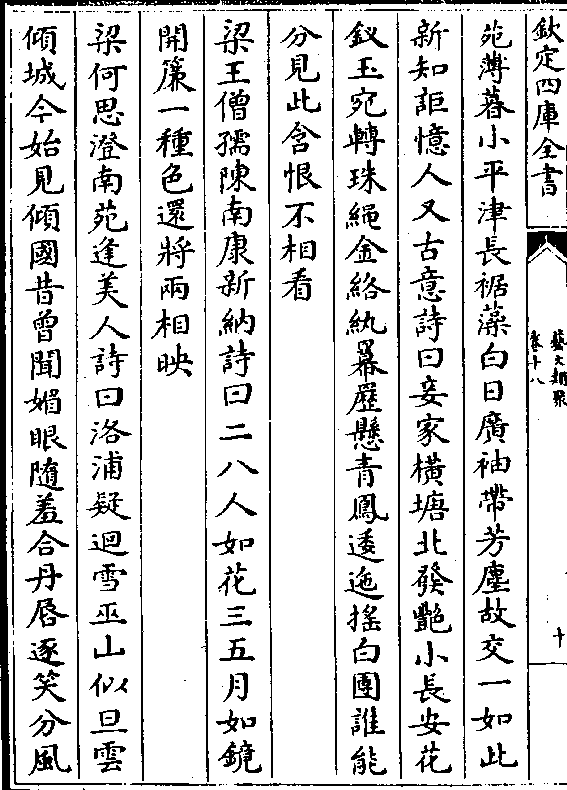 欽定四庫全書
藝文類聚
卷十八
十
苑薄暮小平津長裾藻白日廣袖帶芳塵故交一如此
新知詎憶人又古意詩曰妾家橫塘北發艷小長安花
釵玉宛轉珠繩金絡紈羃歷懸青鳳逶迤搖白團誰能
分見此含恨不相看
梁王僧孺陳南康新納詩曰二八人如花三五月如鏡
開簾一種色還將兩相映
梁何思澄南苑逢美人詩曰洛浦疑迴雪巫山似旦雲
傾城今始見傾國昔曾聞媚眼隨羞合丹唇逐笑分風